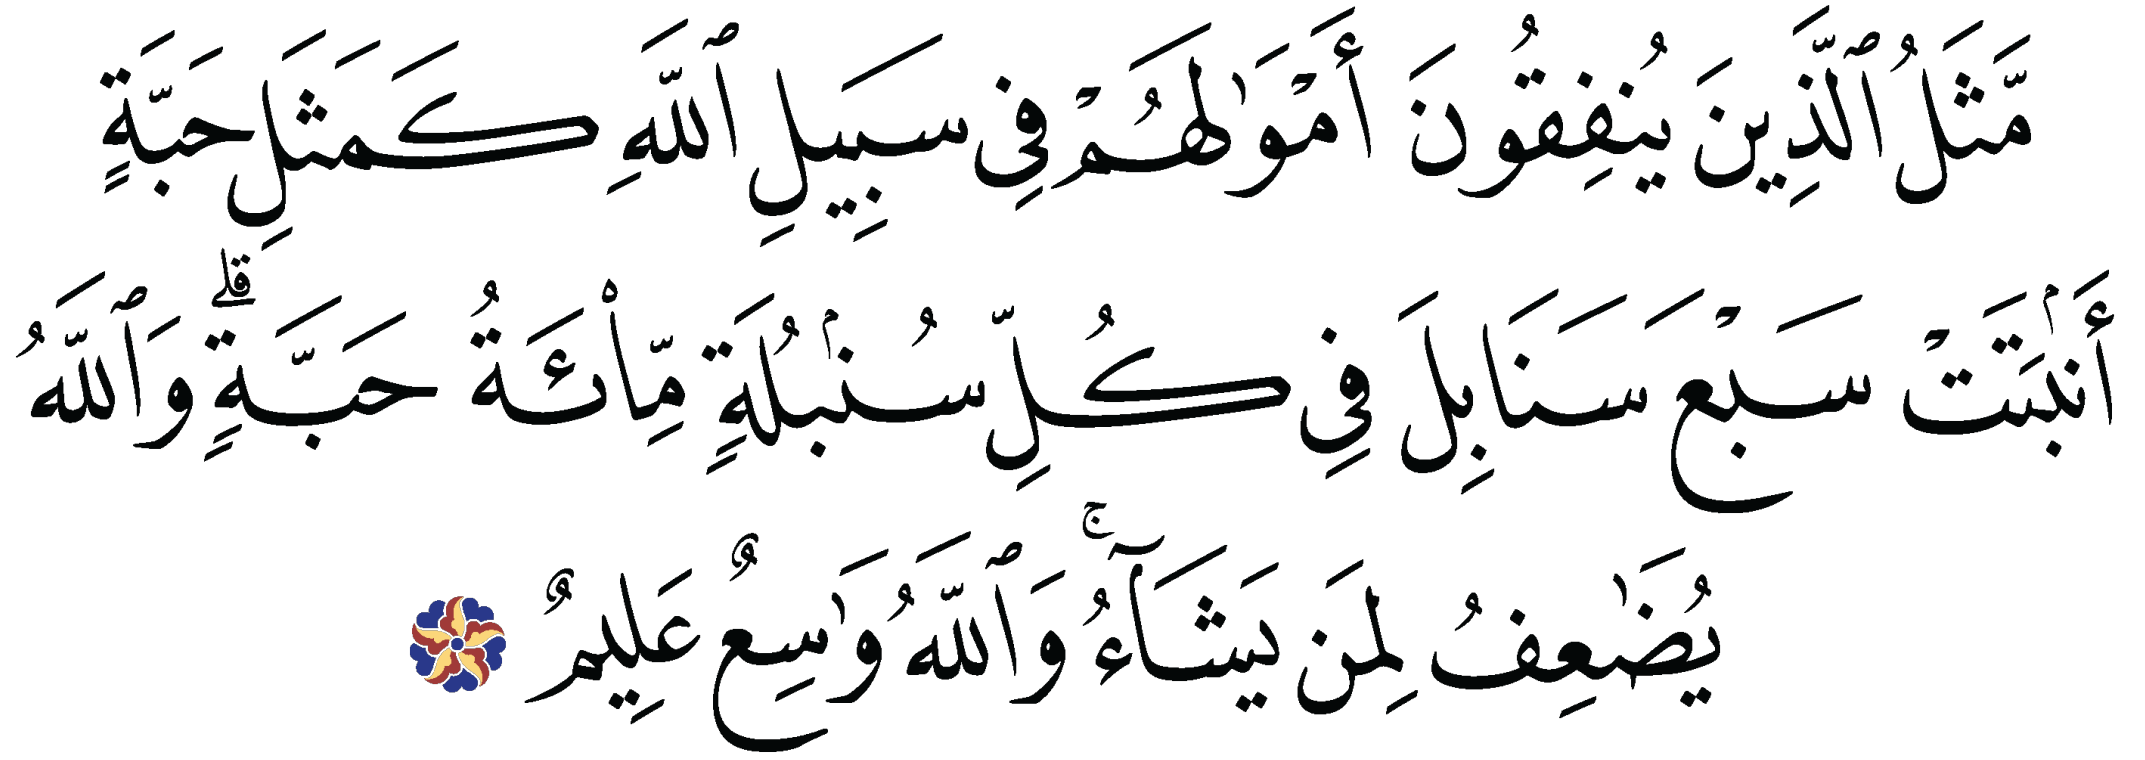 مَّثَلُ ٱلَّذِينَ يُنفِقُونَ أَمْوَٰلَهُمْ فِى سَبِيلِ ٱللَّهِ كَمَثَلِ حَبَّةٍ
أَنۢبَتَتْ سَبْعَ سَنَابِلَ فِى كُلِّ سُنۢبُلَةٍ مِّا۟ئَةُ حَبَّةٍ ۗ وَٱللَّهُ
يُضَٰعِفُ لِمَن يَشَآءُ ۚ وَٱللَّهُ وَٰسِعٌ عَلِيمٌ